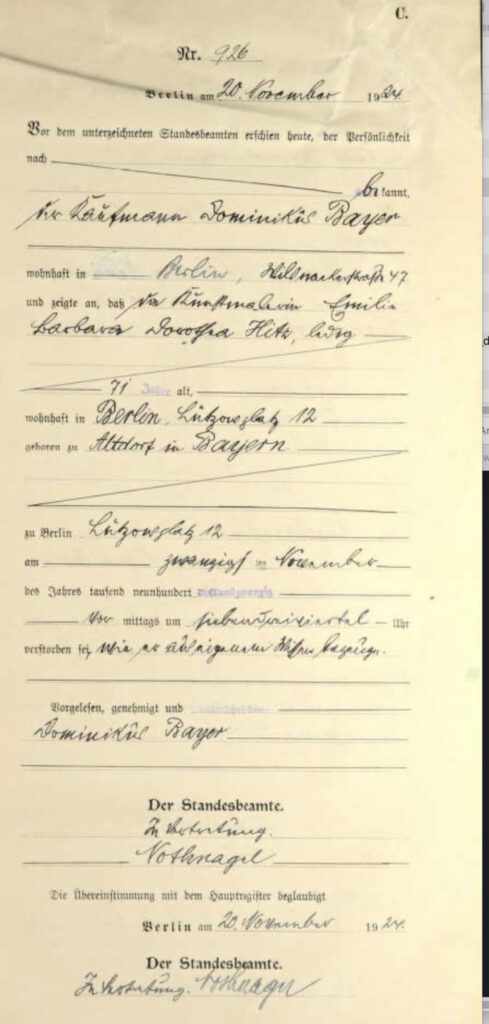 C.
Nr. 926
Berlin am 20. November 1924.
Vor dem unterzeichneten Standesbeamten erschien heute, der Persönlichkeit
nach
be kannt,
der Kaufmann Dominikus Bayer
wohnhaft in Berlin, 47
und zeigte an, daß die Kunstmalerin Emilie
Barbara Dorothea Hitz, ledig
71 Jahre alt,
wohnhaft in Berlin, Lützowplatz 12
geboren zu Altdorf in Bayern
zu Berlin Lützowplatz 12
am zwanzigsten November
des Jahres tausend neunhundert vierundzwanzig
Vor mittags um sieben dreiviertel Uhr
verstorben sei, wie er aus eigenem Wissen bezeuge.
Vorgelesen, genehmigt und unterschrieben
Dominikus Bayer
Der Standesbeamte.
In Vertretung.
Nothnagel
Die Übereinstimmung mit dem Hauptregister beglaubigt
Berlin am 20. November 1924.
Der Standesbeamte.
In Vertretung. Nothnagel